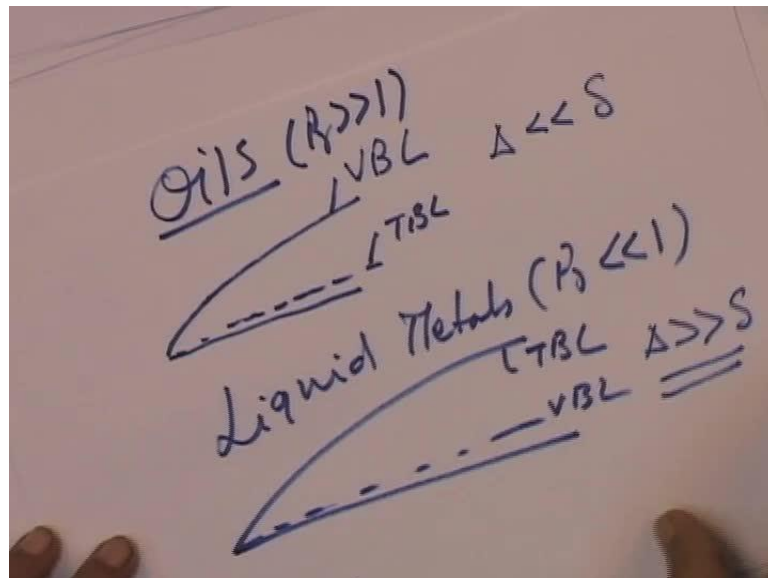 Oils (Pr>>1)
VBL Δ << δ
TBL
Liquid Metals (Pr <<1)
TBL Δ>>δ
VBL